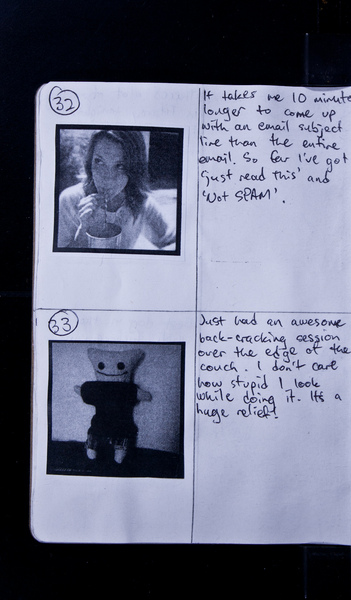 32
It takes me 10 minute
longer to come up
with an email subject
line than the entire
email. So far I've got
'just read this' and
'Not SPAM'.
33
Just had an awesome
back-cracking session
over the edge of the
couch. I don't care
how stupid I look
while doing it. Its a
huge relief!